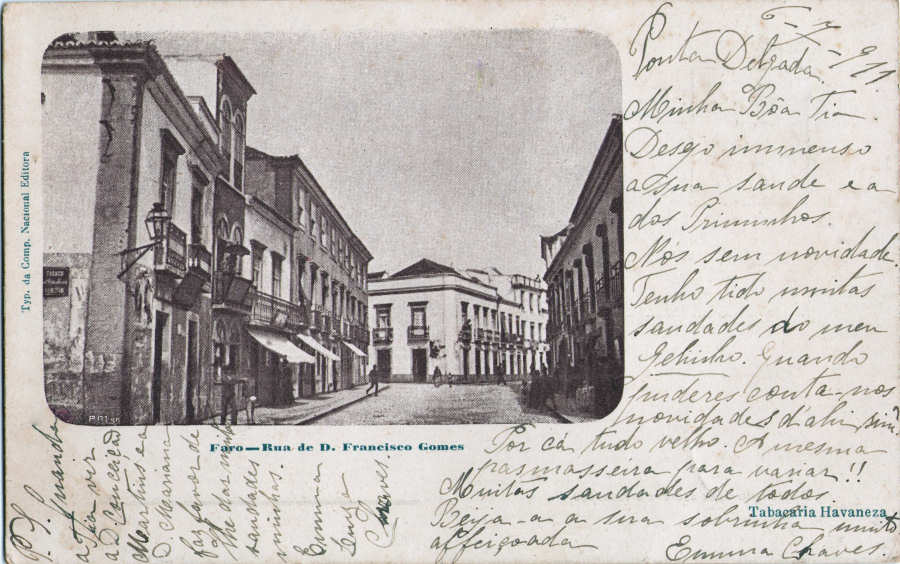 Typ. da Comp. Nacional Editora
TABACO
Faro—Rua de D. Francisco Gomes
Tabacaria Havaneza
Ponta Delgada
7-7-911
Minha Bôa Tia
Desejo immenso
a sua saude e a
dos Priminhos.
Nós sem novidade.
Tenho tido muitas
saudades do meu
Gelinho. Quando
puderes conta-nos
novidades d'ahi sim?
Por cá tudo velho. A mesma
pasmasseira para variar!!
Muitas saudades de todos.
Beija-a a sua sobrinha muito
affeiçoada
Emma Chaves.
P.S. Quando
a tia vir
a D. Conceição
Martins e a
D. Marianna
faz favor de
lhe dar m.
saudades
minhas
Emma
Luz
Chaves